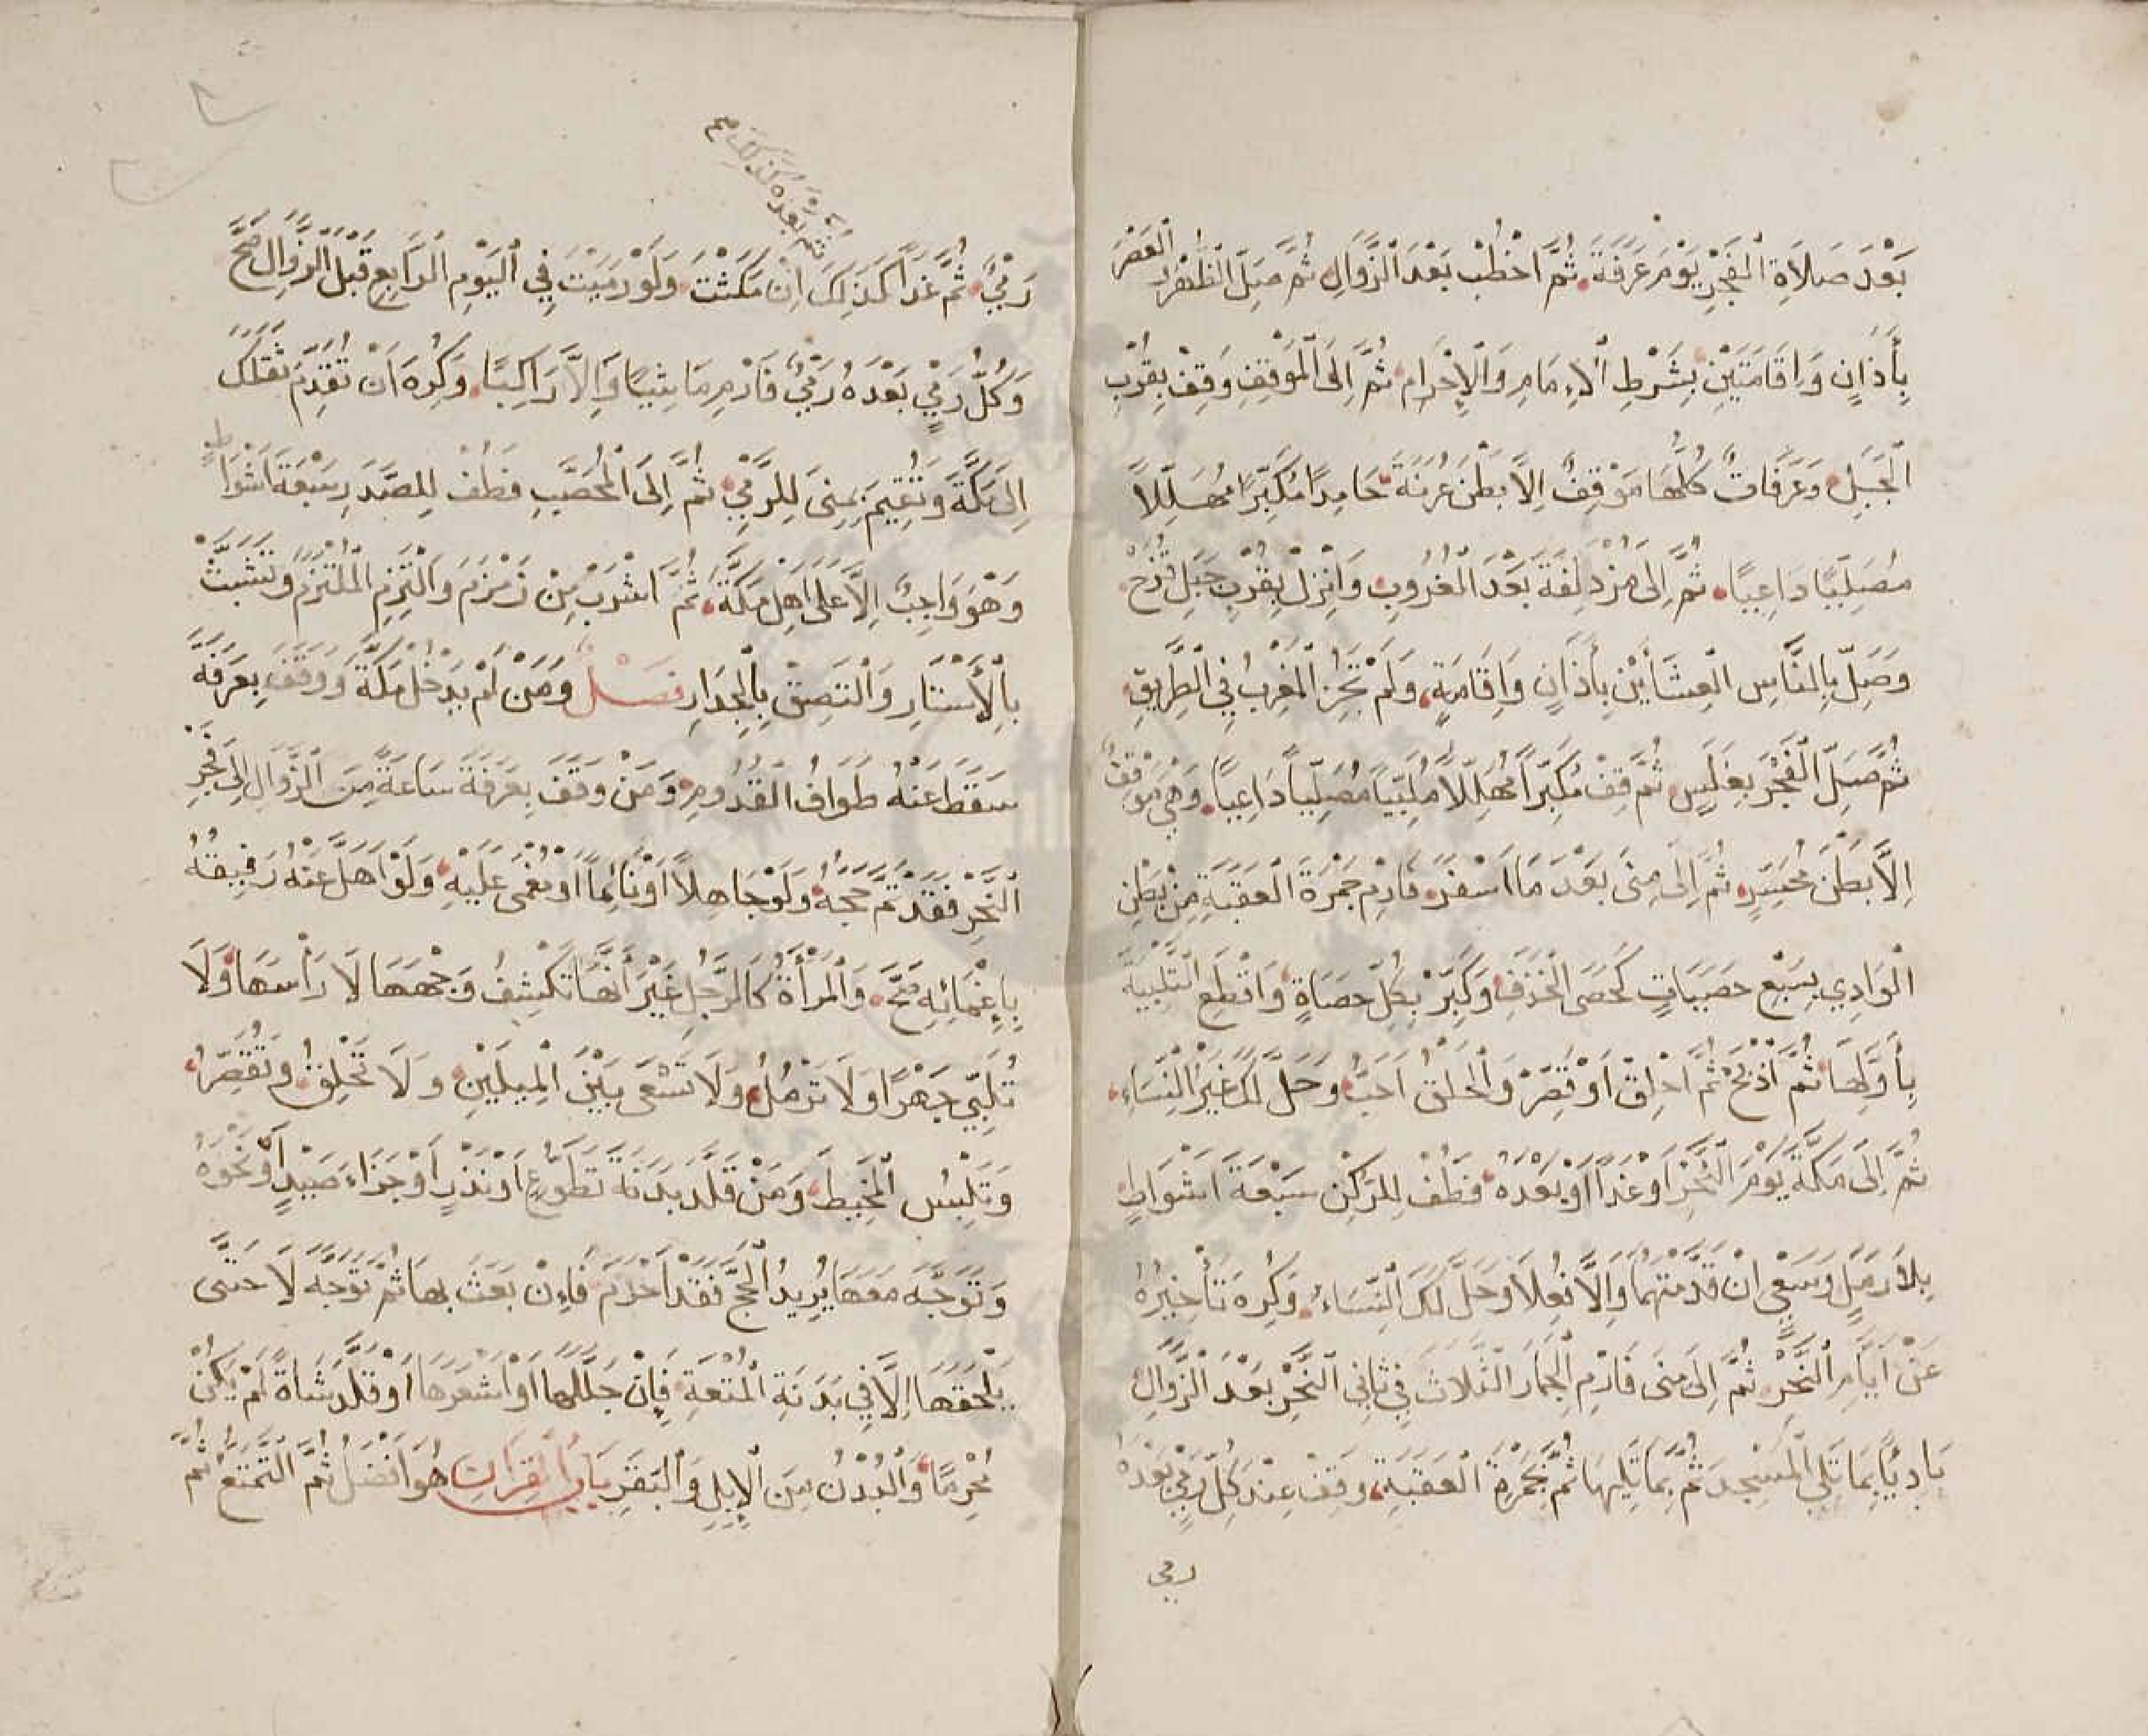 بَعْدَ صَلَاةِ الْفَجْرِ يَوْمَ عَرَفَةَ ثُمَّ اخْطُبْ بَعْدَ الزَّوَالِ ثُمَّ صَلِّ الظُّهْرَ وَالْعَصْرَ
بِأَذَانٍ وَإِقَامَتَيْنِ بِشَرْطِ الْإِمَامِ وَالْإِحْرَامِ ثُمَّ إِلَى الْمَوْقِفِ وَقِفْ بِقُرْبِ
الْجَبَلِ وَعَرَفَاتٌ كُلُّهَا مَوْقِفٌ إِلَّا بَطْنَ عُرَنَةَ حَامِدًا مُكَبِّرًا مُهَلِّلًا
مُصَلِّيًا دَاعِيًا ثُمَّ إِلَى مُزْدَلِفَةَ بَعْدَ الْغُرُوبِ وَانْزِلْ بِقُرْبِ جَبَلِ قُزَحَ
وَصَلِّ بِالنَّاسِ الْعِشَائَيْنِ بِأَذَانٍ وَإِقَامَةٍ وَلَمْ تَجُزِ الْمَغْرِبُ فِي الطَّرِيقِ
ثُمَّ صَلِّ الْفَجْرَ بِغَلَسٍ ثُمَّ قِفْ مُكَبِّرًا مُهَلِّلًا مُلَبِّيًا مُصَلِّيًا دَاعِيًا وَهِيَ مَوْقِفٌ
إِلَّا بَطْنَ مُحَسِّرٍ ثُمَّ إِلَى مِنًى بَعْدَ مَا أَسْفَرَ فَارْمِ جَمْرَةَ الْعَقَبَةِ مِنْ بَطْنِ
الْوَادِي بِسَبْعِ حَصَيَاتٍ كَحَصَى الْخَذَفِ وَكَبِّرْ بِكُلِّ حَصَاةٍ وَاقْطَعِ التَّلْبِيَةَ
بِأَوَّلِهَا ثُمَّ اذْبَحْ ثُمَّ احْلِقْ أَوْ قَصِّرْ وَالْحَلْقُ أَحَبُّ وَحَلَّ لَكَ غَيْرُ النِّسَاءِ
ثُمَّ إِلَى مَكَّةَ يَوْمَ النَّحْرِ أَوْ غَدًا أَوْ بَعْدَهُ فَطُفْ لِلرُّكْنِ سَبْعَةَ أَشْوَاطٍ
بِلَا رَمَلٍ وَسَعْيٍ إِنْ قَدَّمْتَهُمَا وَإِلَّا فُعِلَا وَحَلَّ لَكَ النِّسَاءُ وَكُرِهَ تَأْخِيرُهُ
عَنْ أَيَّامِ النَّحْرِ ثُمَّ إِلَى مِنًى فَارْمِ الْجِمَارَ الثَّلَاثَ فِي ثَانِي النَّحْرِ بَعْدَ الزَّوَالِ
بَادِيًا بِمَا تَلِي الْمَسْجِدَ ثُمَّ بِمَا تَلِيهَا ثُمَّ بِجَمْرَةِ الْعَقَبَةِ وَقِفْ عِنْدَ كُلِّ رَمْيٍ بَعْدَهُ
رمي
ثُمَّ بَعْدَهُ كَذَلِكَ
رَمْيٌ ثُمَّ غَدًا كَذَلِكَ إِنْ مَكَثْتَ وَلَوْ رَمَيْتَ فِي الْيَوْمِ الرَّابِعِ قَبْلَ الزَّوَالِ صَحَّ
وَكُلُّ رَمْيٍ بَعْدَهُ رَمْيٌ فَارْمِ مَاشِيًا وَإِلَّا رَاكِبًا وَكُرِهَ أَنْ تُقَدِّمَ ثَقَلَكَ
إِلَى مَكَّةَ وَتُقِيمَ بِمِنَى لِلرَّمْيِ ثُمَّ إِلَى الْمُحَصَّبِ فَطُفْ لِلصَّدَرِ سَبْعَةَ أَشْوَاطٍ
وَهُوَ وَاجِبٌ إِلَّا عَلَى أَهْلِ مَكَّةَ ثُمَّ اشْرَبْ مِنْ زَمْزَمَ وَالْتَزِمِ الْمُلْتَزَمَ وَتَشَبَّثْ
بِالْأَسْتَارِ وَالْتَصِقْ بِالْجِدَارِ فَصْلٌ وَمَنْ لَمْ يَدْخُلْ مَكَّةَ وَوَقَفَ بِعَرَفَةَ
سَقَطَ عَنْهُ طَوَافُ الْقُدُومِ وَمَنْ وَقَفَ بِعَرَفَةَ سَاعَةً مِنَ الزَّوَالِ إِلَى فَجْرِ
النَّحْرِ فَقَدْ تَمَّ حَجُّهُ وَلَوْ جَاهِلًا أَوْ نَائِمًا أَوْ مُغْمَى عَلَيْهِ وَلَوْ أَهَلَّ عَنْهُ رَفِيقُهُ
بِإِغْمَائِهِ صَحَّ وَالْمَرْأَةُ كَالرَّجُلِ غَيْرَ أَنَّهَا تَكْشِفُ وَجْهَهَا لَا رَأْسَهَا وَلَا
تُلَبِّي جَهْرًا وَلَا تَرْمُلُ وَلَا تَسْعَى بَيْنَ الْمِيلَيْنِ وَلَا تَحْلِقُ وَتُقَصِّرُ
وَتَلْبَسُ الْمَخِيطَ وَمَنْ قَلَّدَ بَدَنَةَ تَطَوُّعٍ أَوْ نَذْرٍ أَوْ جَزَاءَ صَيْدٍ أَوْ نَحْوَهُ
وَتَوَجَّهَ مَعَهَا يُرِيدُ الْحَجَّ فَقَدْ أَحْرَمَ فَإِنْ بَعَثَ بِهَا ثُمَّ تَوَجَّهَ لَا حَتَّى
يَلْحَقَهَا إِلَّا فِي بَدَنَةِ الْمُتْعَةِ فَإِنْ جَلَّلَهَا أَوْ أَشْعَرَهَا أَوْ قَلَّدَ شَاةً لَمْ يَكُنْ
مُحْرِمًا وَالْبُدْنُ مِنَ الْإِبِلِ وَالْبَقَرِ بَابُ الْقِرَانِ هُوَ أَفْضَلُ ثُمَّ التَّمَتُّعُ ثُمَّ